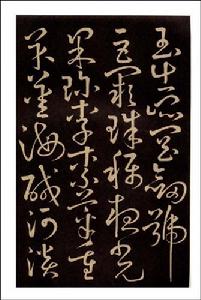 玉出崑岡劍號
巨闕珠稱夜光
果珍李柰菜重
芥薑海鹹河淡